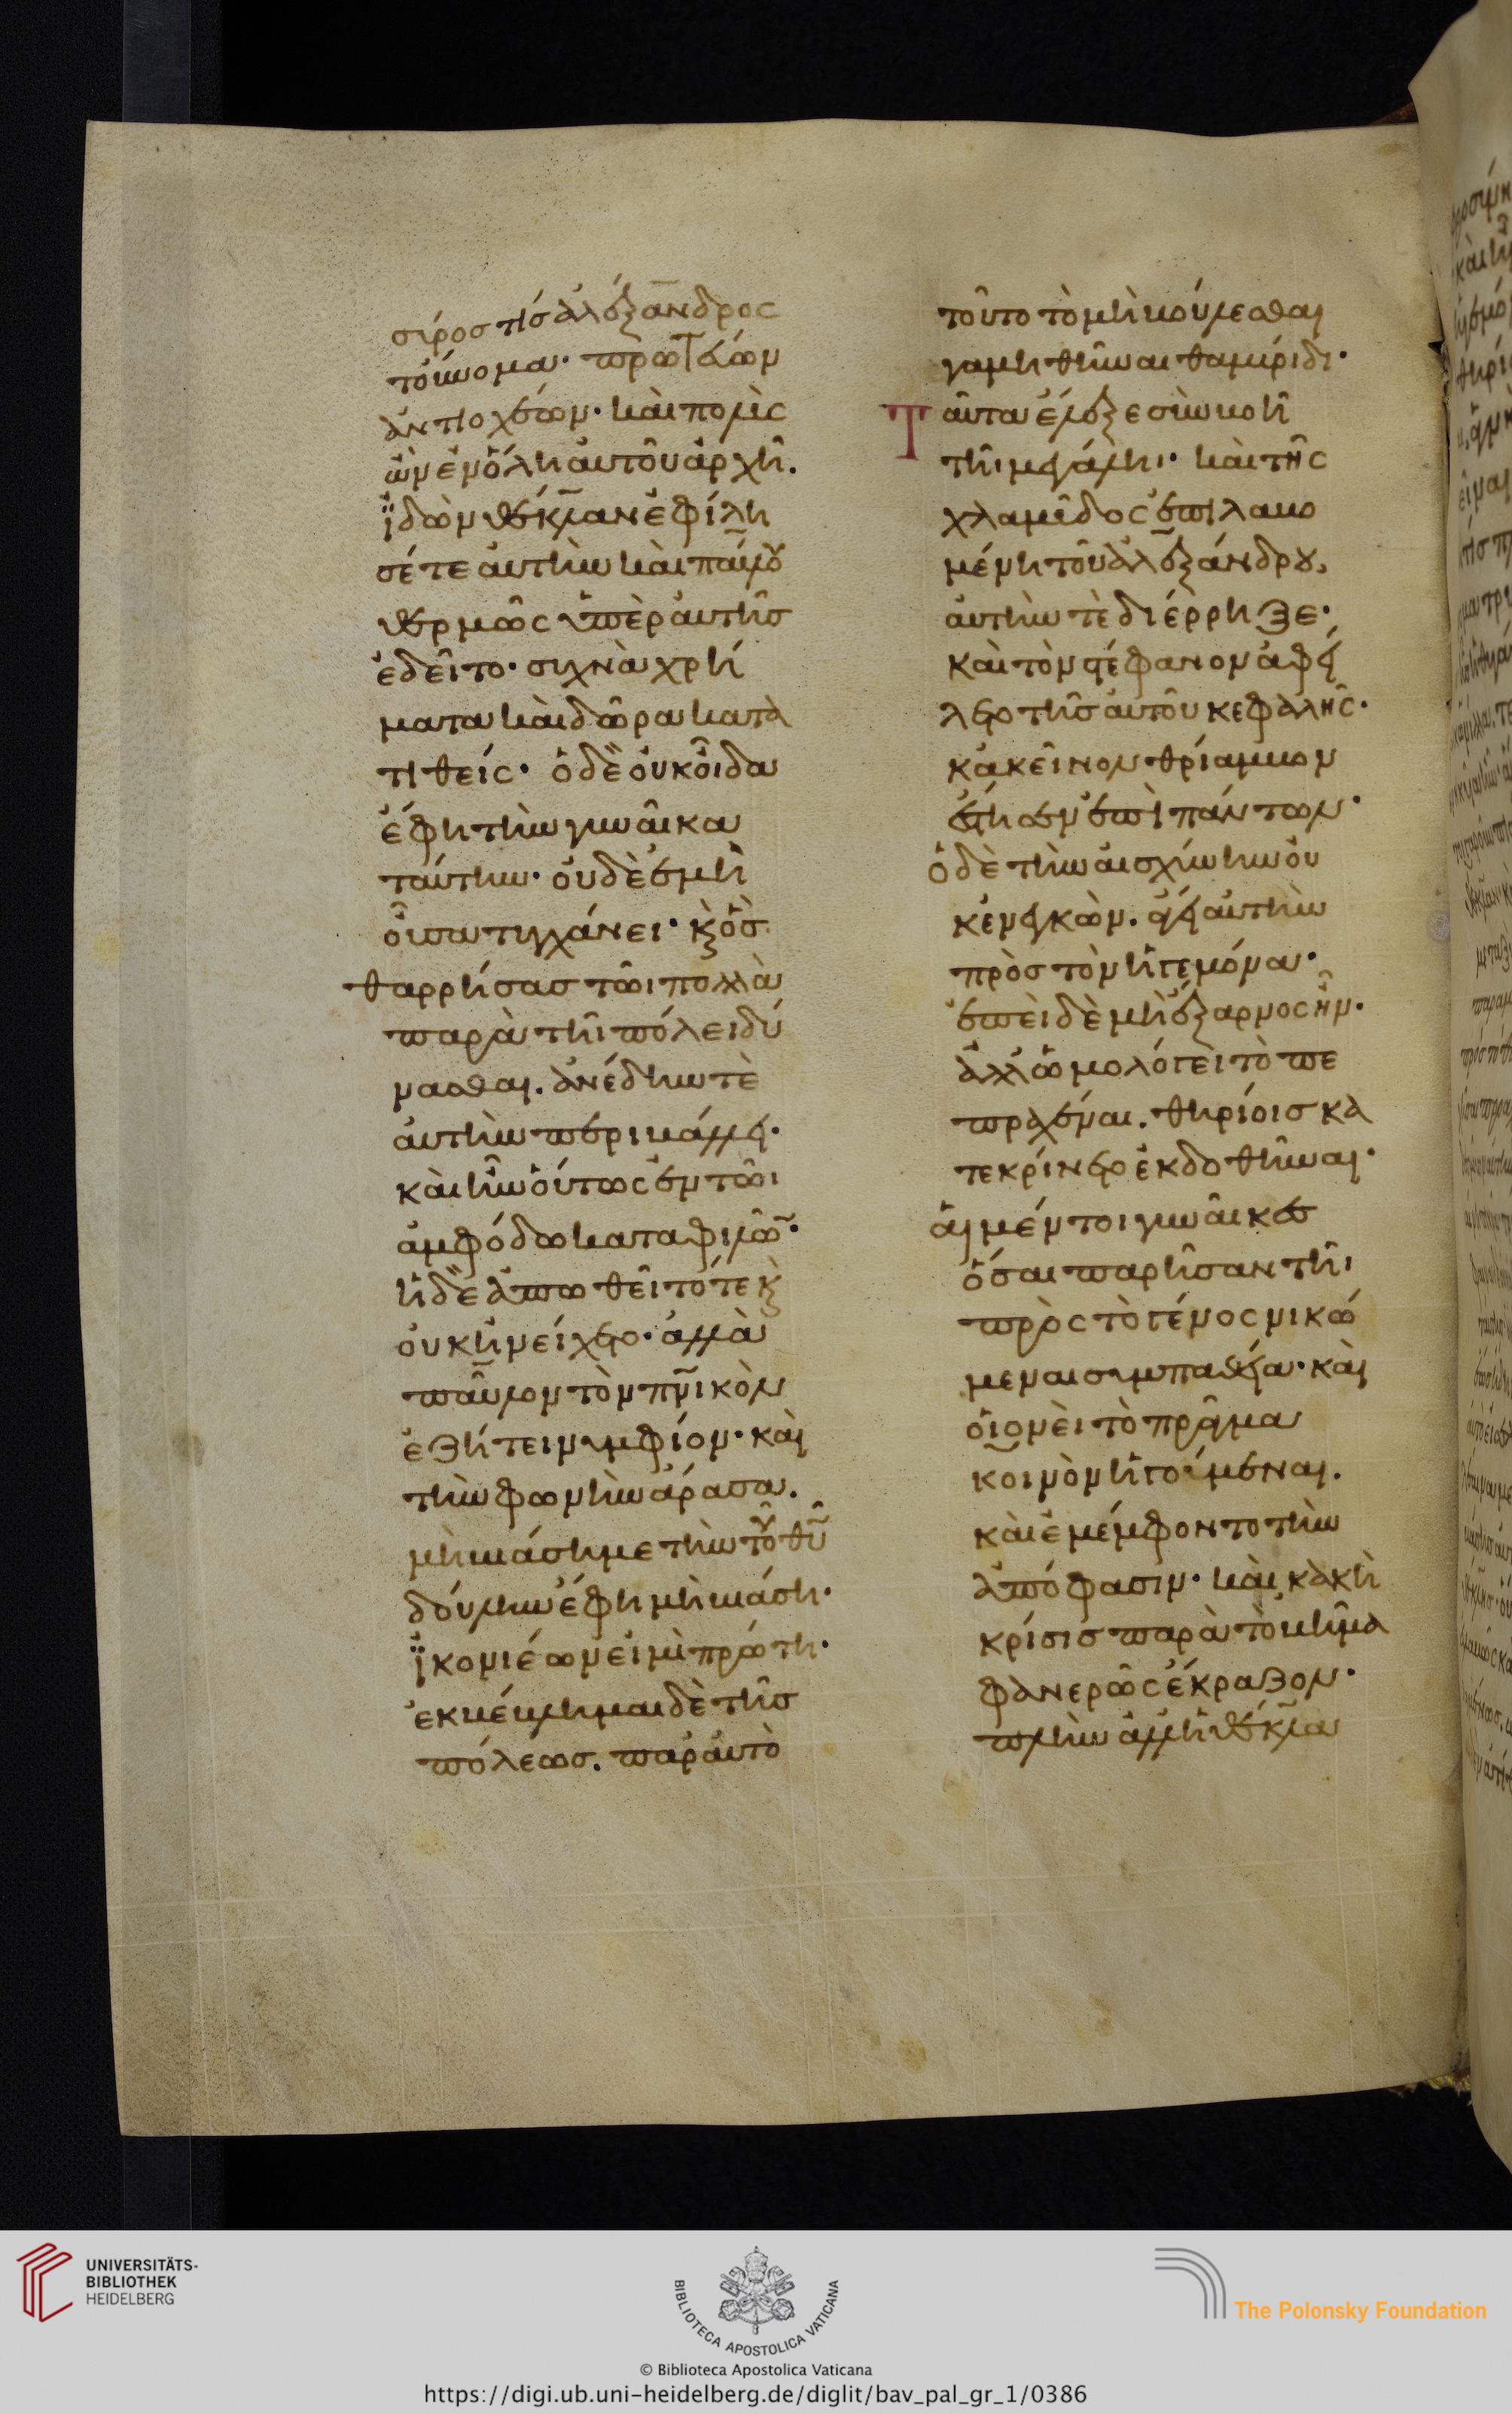 σύρος τίς ἀλέξανδρος
τοὔνομα· πρῶτ τῶν
ἀντιοχέων· καὶ πολὺς
ὢν ἐν ὅλη αὐτοῦ ἀρχῆ.
ἰ̈δὼν θέκλαν ἐφίλη
σέ τε αὐτὴν καὶ παύλου
θερμῶς ὑπὲρ αὐτῆς
ἐδεῖτο· συχνὰ χρή
ματα καὶ δῶρα κατα
τιθείς· ὁ δὲ οὐκ οἶδα
ἔφη τὴν γυναῖκα
ταύτην· οὐδὲ ἐμὴ
οὖσα τυγχάνει· κ ὃς
θαρρήσας τῶι πολλὰ
παρὰ τῆι πόλει δύ
νασθαι. ἀνέδην τὲ
αὐτὴν περιβάλλει·
καὶ ἦν οὕτως ἐν τῶι
ἀμφόδω καταφιλῶ·
ἡ δὲ ἀπωθεῖτό τε κ
οὐκ ἠνείχετο· ἀλλὰ
παῦλον τὸν πνικὸν
ἐζήτει νυμφίον· καὶ
τὴν φωνὴν ἄρασα.
μὴ βιάση με τὴν τοῦ θυ
δούλην ἔφη μὴ βιάση·
ἰ̈κονιέων εἰμὶ πρώτη·
ἐκβέβλημαι δὲ τῆς
πόλεως. παρ αὐτὸ
τοῦτο τὸ μὴ βούλεσθαι
γαμηθῆναι θαμύριδι·
Ταῦτα ἔλεξε σὺν βοῆ
τῆι μεγάλη· καὶ τῆς
χλαμύδος ἐπιλαβο
μένη τοῦ ἀλεξάνδρου,
αὐτὴν τὲ διέρρηξε·
καὶ τὸν στέφανον ἀφεί
λετο τῆς αὐτοῦ κεφαλῆς·
κἀκεῖνον θρίαμβον
ἔστησεν ἐπὶ πάντων·
ὁ δὲ τὴν αἰσχύνην οὐ
κ ἐνεγκὼν. ἄγει αὐτὴν
πρὸς τὸν ἡγεμόνα·
ἐπεὶ δὲ μὴ ἔξαρνος ἦν·
ἀλλ ὡμολόγει τὸ πε
πραχέναι. θηρίοις κα
τεκρίνετο ἐκδοθῆναι·
αἱ μέντοι γυναῖκες
ὅσαι παρῆσαν τῆι
πρὸς τὸ γένος νικώ
μεναι συμπαθεία· καὶ
οἱονεὶ τὸ πρᾶγμα
κοινὸν ἡγούμεναι.
καὶ ἐμέμφοντο τὴν
ἀπόφασιν· καὶ κακὴ
κρίσις παρὰ τὸ βῆμα
φανερῶς ἔκραζον·
πλὴν ἀλλ ἡ θέκλα
UNIVERSITÄTS-
BIBLIOTHEK
HEIDELBERG
BIBLIOTECA APOSTOLICA VATICANA
The Polonsky Foundation
© Biblioteca Apostolica Vaticana
https://digi.ub.uni-heidelberg.de/diglit/bav_pal_gr_1/0386